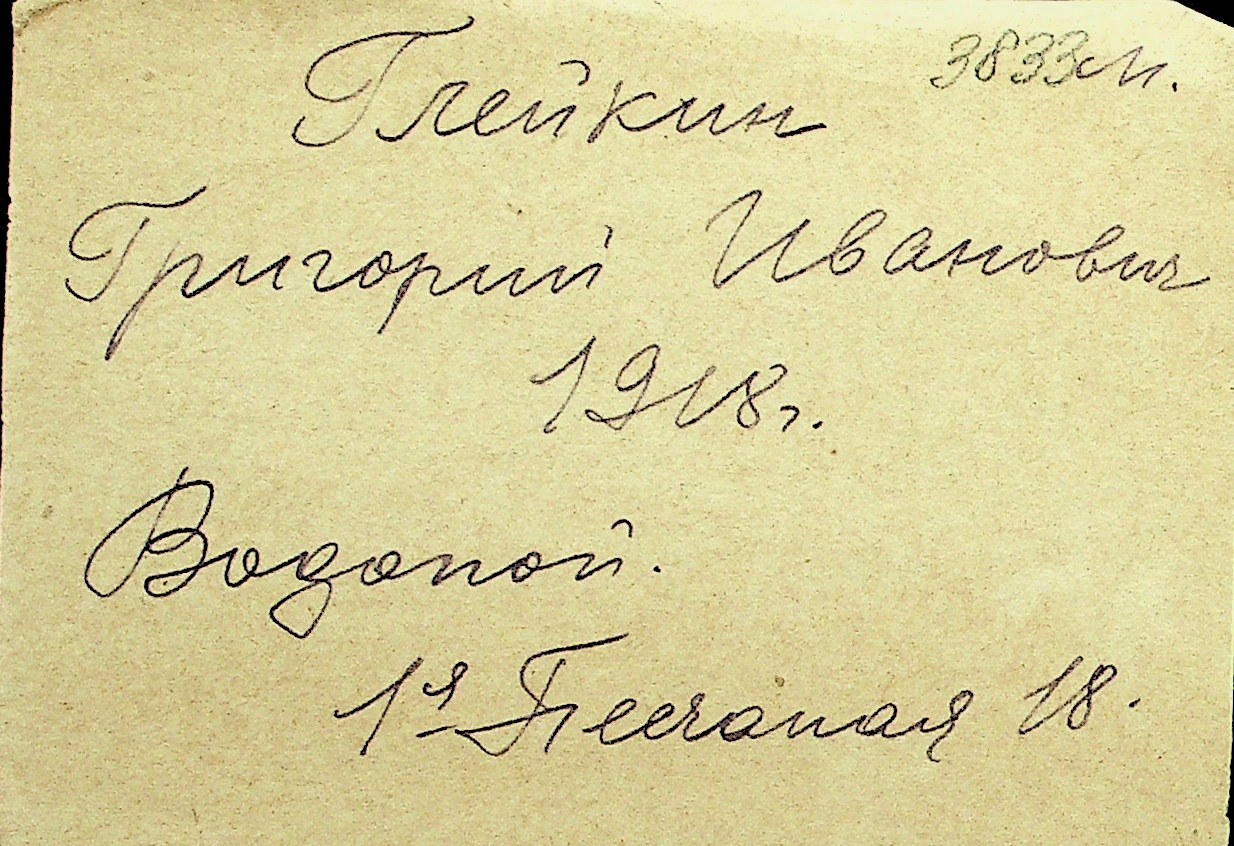 3833м.
Глейкин
Григорий Иванович
1918г.
Водопой.
1я Песчаная 18.